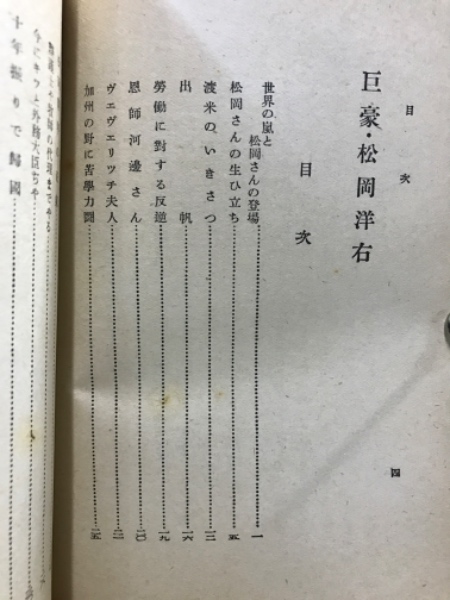 目次
四
巨豪・松岡洋右
目次
世界の嵐と
松岡さんの登場…一
松岡さんの生ひ立ち…五
渡米のいきさつ…一二
出帆…一六
勞働に對する反逆…一九
恩師河邊さん…二〇
ヴェヴェリッチ夫人…二二
加州の野に苦學力鬪…二五
今にキッと外務大臣ぢや
十年振りで歸國